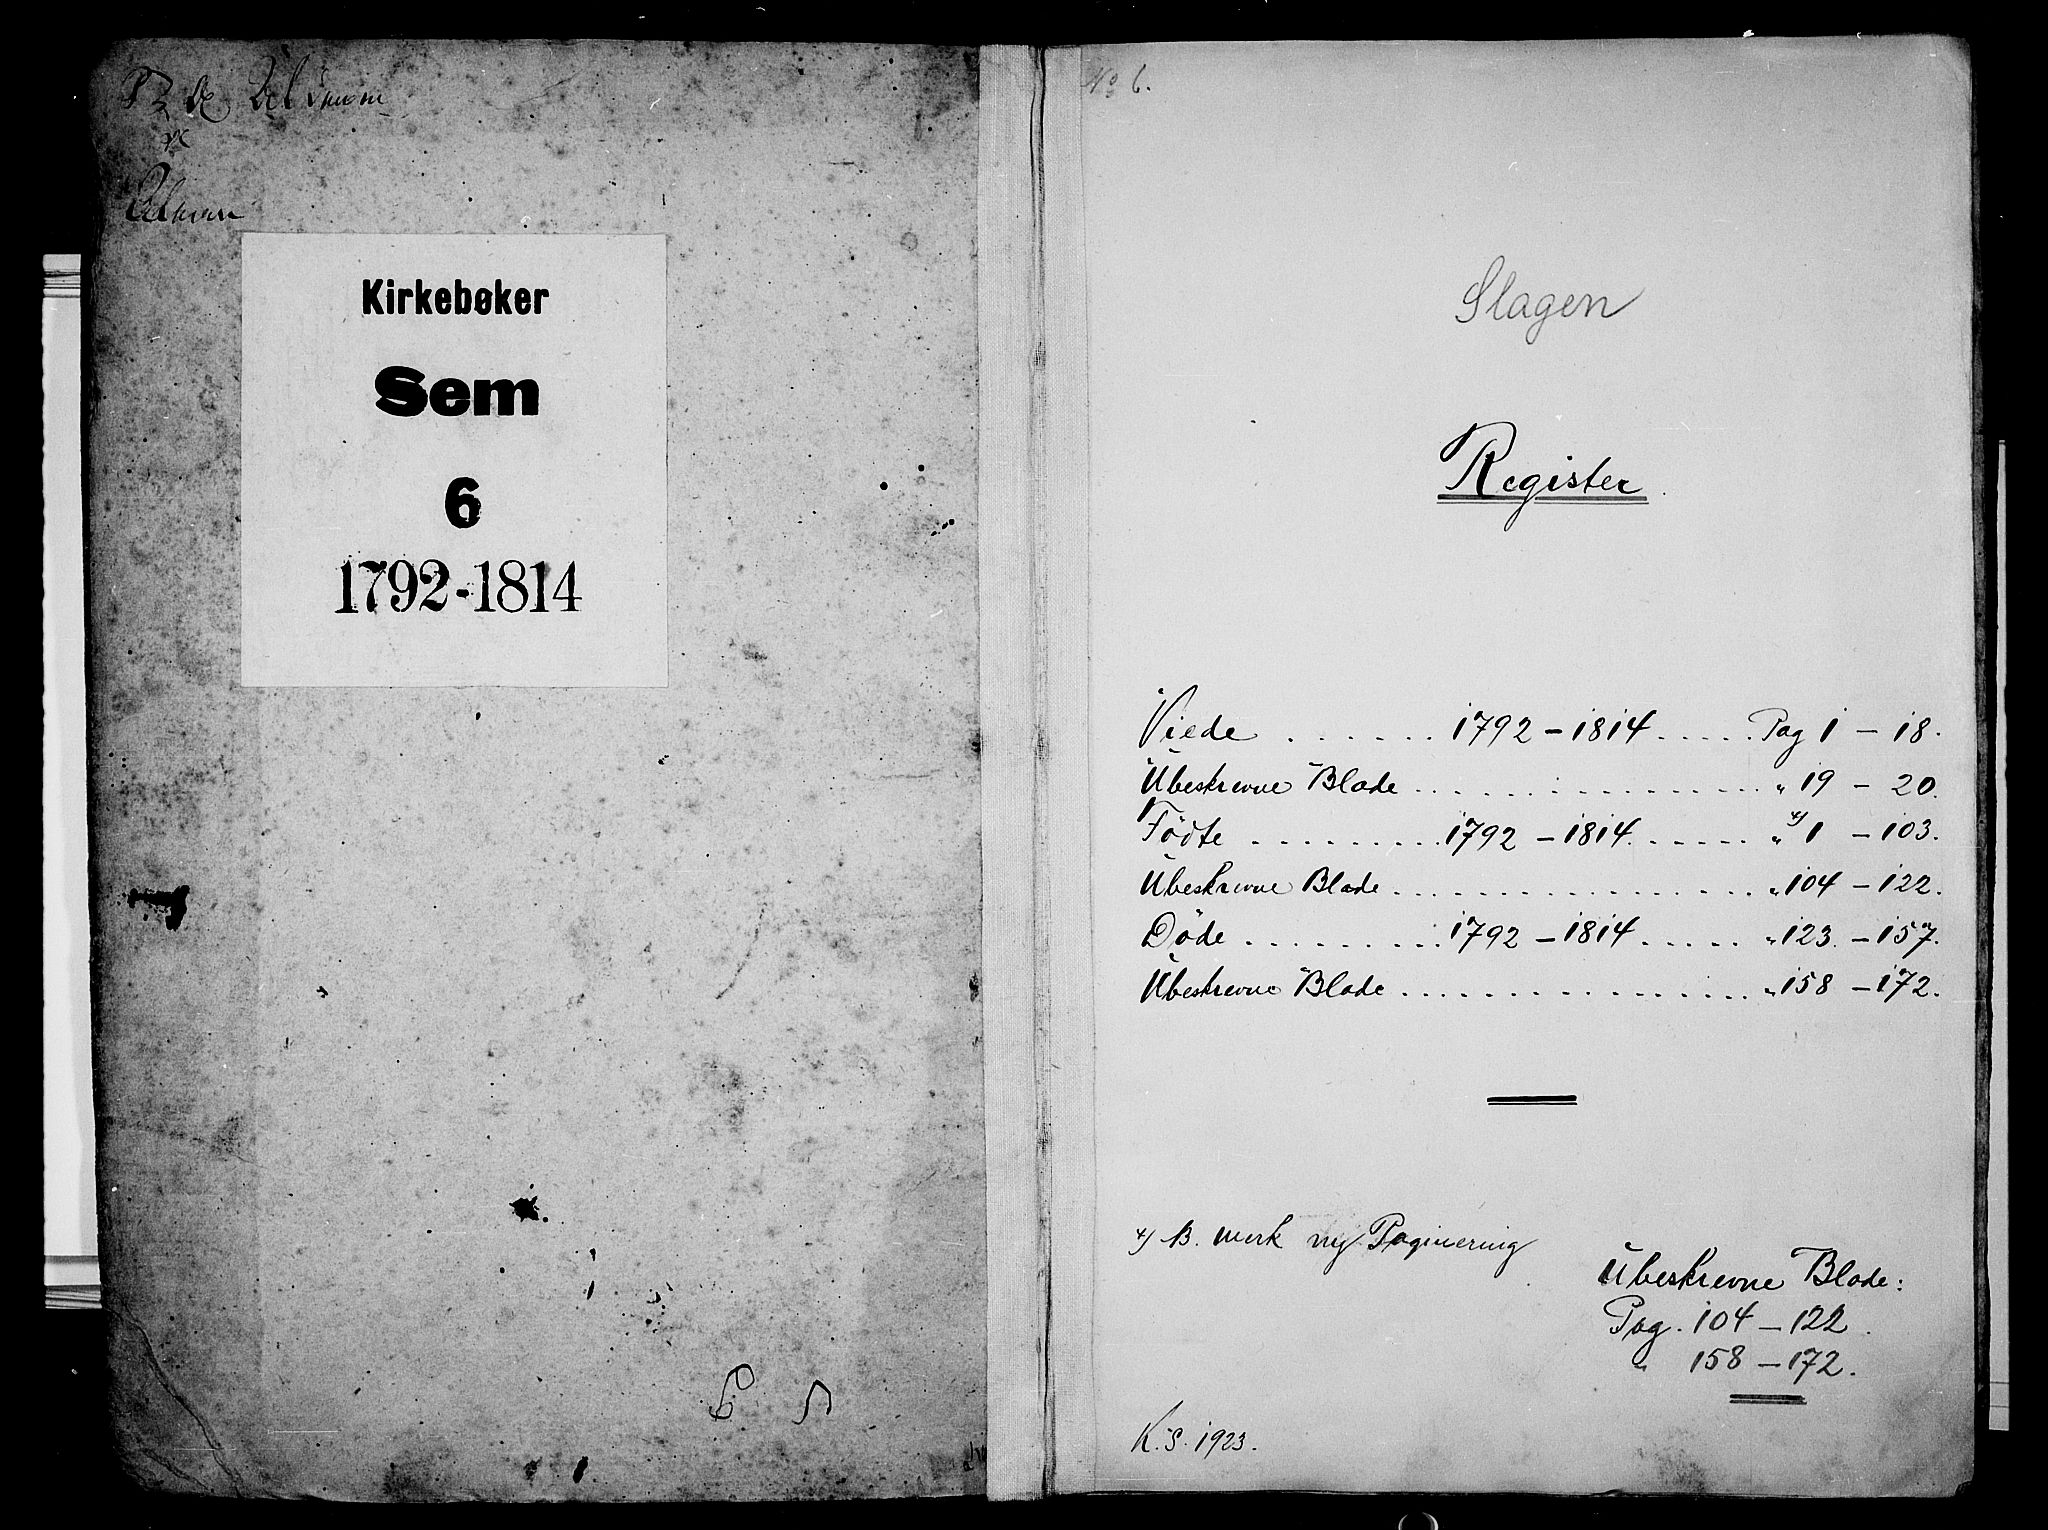 Kirkebøker
Sem
6
1792-1814
6
No 6.
Slagen
Register
Viede . . . . . . 1792 – 1814 . . . . . Pag 1 – 18.
Ubeskrevne Blade . . . . . . . . . . . . . . . . „ 19 – 20.
Födte . . . . . . . . . 1792 – 1814. . . . . . „ x) 1 – 103.
Ubeskrevne Blade . . . . . . . . . . . . . . . . „ 104 – 122.
Döde . . . . . . . . . 1792 – 1814 . . . . . „ 123. – 157.
Ubeskrevne Blade . . . . . . . . . . . . . . . . „ 158 – 172.
x) B. merk ny Paginering
Ubeskrevne Blade:
Pag. 104 – 122.
„ 158 – 172.
K. S. 1923.